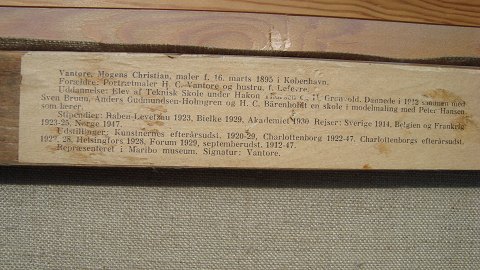 Vantore, Mogens Christian, maler f. 16. marts 1895 i København.
Forældre: Portrætmaler H. C. Vantore og hustru, f. Lefevre.
Uddannelse: Elev af Teknisk Skole under Hakon Grønvold. Dannede i 1912 sammen med
Sven Bruno, Anders Gudmundsen-Holmgren og H. C. Bärenholdt en skole i modelmaling med Peter Hansen
som lærer.
Stipendier: Raben-Levetzau 1923, Bielke 1929, Akademiet 1930. Rejser: Sverige 1914, Belgien og Frankrig
1923-25, Norge 1947.
Udstillinger: Kunstnernes efterårsudst. 1920-29, Charlottenborg 1922-47. Charlottenborgs efterårsudst.
1927, 28, Helsingfors 1928, Forum 1929, septemberudst. 1912-47.
Repræsenteret i Maribo museum. Signatur: Vantore.